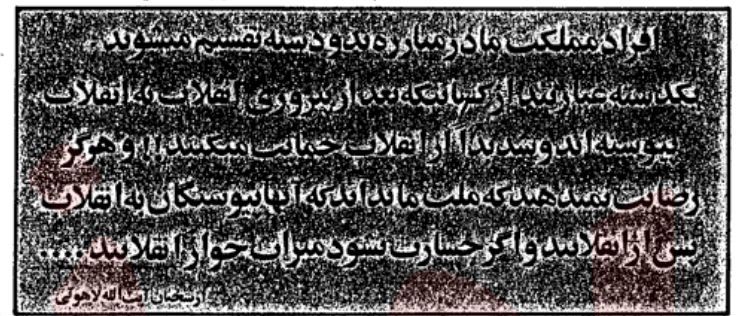 افراد مملکت ما در مبارزه بدو دسته تقسیم میشوند
یکدسته عبارتند از کسانیکه بعد از پیروزی انقلاب به انقلاب
پیوسته اند و شدیداً از انقلاب حمایت میکنند!! و هرگز
رضایت نمیدهند که ملت ما بداند که آنها پیوستگان به انقلاب
پس از انقلابند و اگر جسارت نشود میراث خوار انقلابند....
از سخنان آیت الله لاهوتی